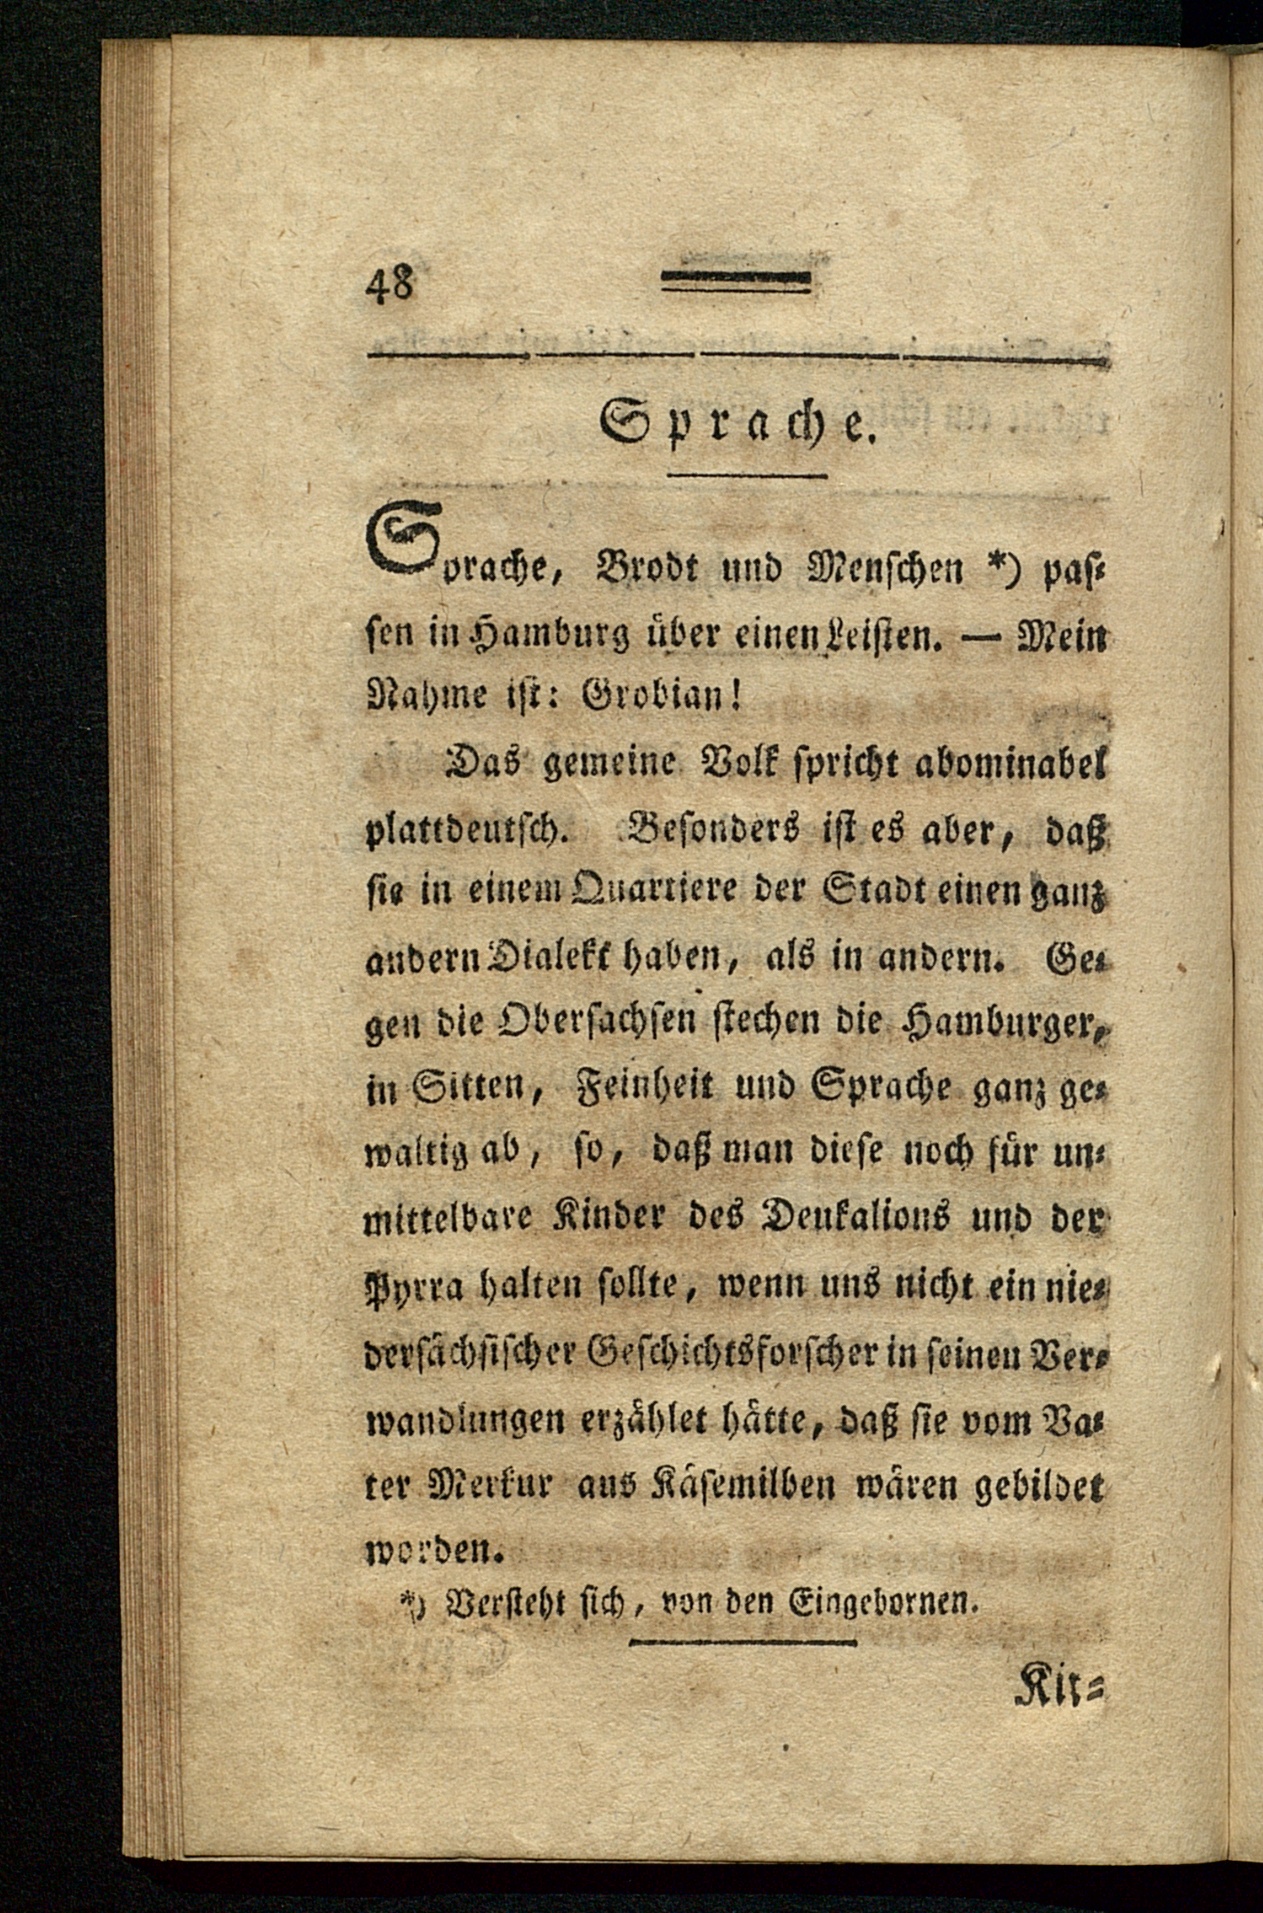 48
Sprache.
Sprache, Brodt und Menschen *) pas-
sen in Hamburg über einen Leisten. — Mein
Nahme ist: Grobian!
Das gemeine Volk spricht abominabel
plattdeutsch. Besonders ist es aber, daß
sie in einem Quartiere der Stadt einen ganz
andern Dialekt haben, als in andern. Ge-
gen die Obersachsen stechen die Hamburger,
in Sitten, Feinheit und Sprache ganz ge-
waltig ab, so, daß man diese noch für un-
mittelbare Kinder des Deukalions und der
Pyrra halten sollte, wenn uns nicht ein nie-
dersächsischer Geschichtsforscher in seinen Ver-
wandlungen erzählet hätte, daß sie vom Va-
ter Merkur aus Käsemilben wären gebildet
worden.
*) Versteht sich, von den Eingebornen.
Kir-